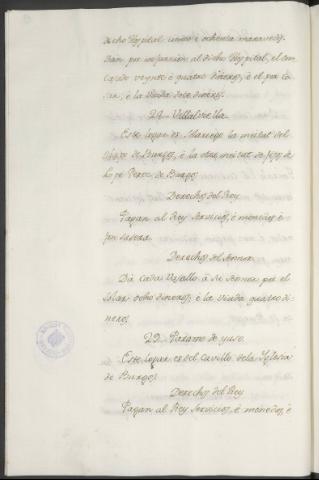 dicho Hospital cinco è ochenta maravedis
dan por infurcion al dicho Hospital, el con
çejado veynte è quatro dineros, è el por la
bar, è la Viuda doce dineros.
28 Villalvilla
Este logar es Abadengo la meitat del
Obispo de Burgos, è la otra meitat de fijos de
Lope Perez de Burgos
Derechos del Rey
Pagan al Rey servicios, è monedas è
fonsadera.
Derechos del Sennor
Dà cada Vasallo à su Sennor por el
Solar ocho dineros, è la Viuda quatro di-
neros.
29 Paramo de yuso.
Este logar es del Cavillo de la Iglesia
de Burgos
Derechos del Rey
Pagan al Rey servicios, è monedas, è